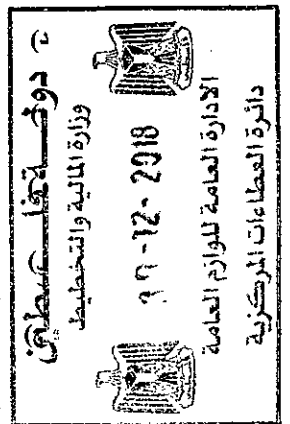 دولة فلسطين
وزارة المالية والتخطيط
-12- 2018
الادارة العامة للوازم العامة
دائرة العطاءات المركزية